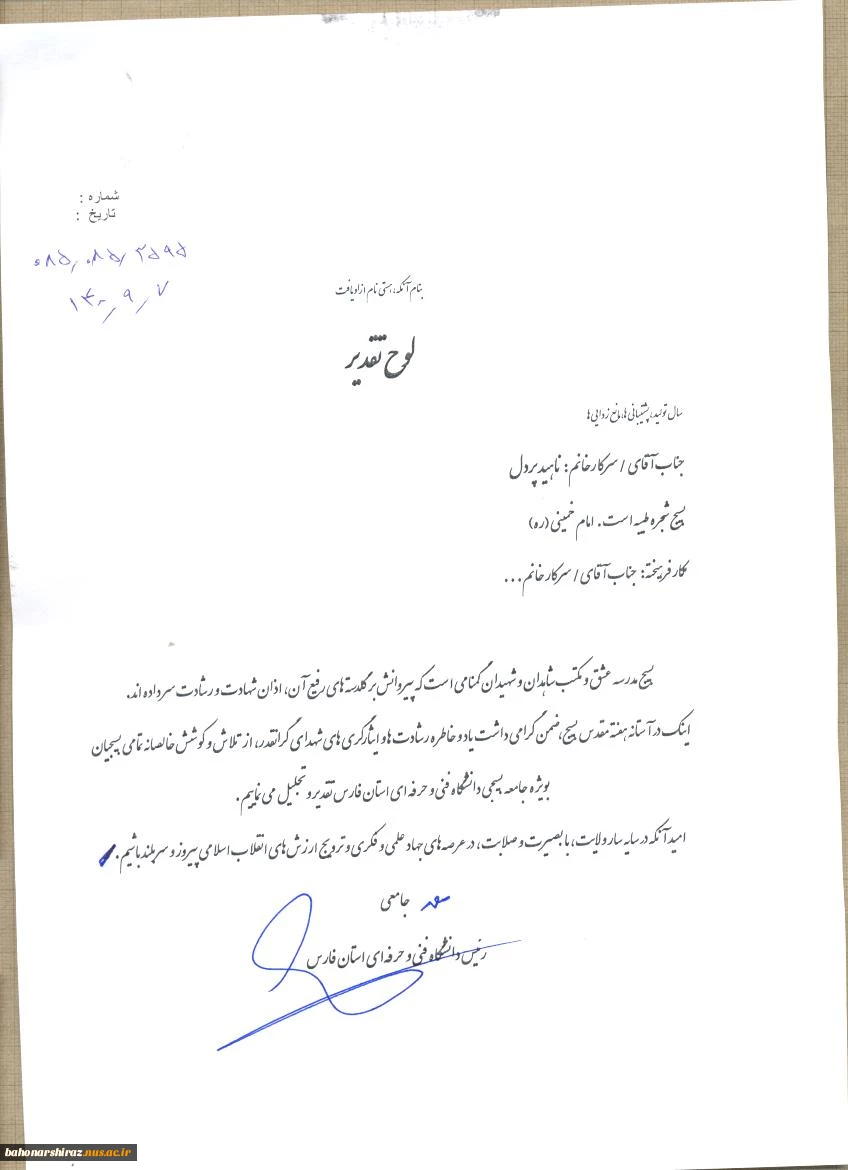 شماره :
تاریخ :
۰۸۵/۰۸۵/۲۵۹۵
۱۴۰۰/۹/۷
بنام آنکه، هستی نام از او یافت
لوح تقدیر
سال تولید، پشتیبانی ها، مانع زدایی ها
جناب آقای / سرکار خانم: ناهید پردل
بسیج شجره طیبه است. امام خمینی (ره)
همکار فریخته: جناب آقای / سرکار خانم ...
بسیج مدرسه عشق و مکتب شاهدان و شهیدان گمنامی است که پیروانش بر گلدسته های رفیع آن، اذان شهادت و رشادت سر داده اند.
اینک در آستانه هفته مقدس بسیج، ضمن گرامی داشت یاد و خاطره رشادت ها و ایثارگری های شهدای گرانقدر، از تلاش و کوشش خالصانه تمامی بسیجیان
بویژه جامعه بسیجی دانشگاه فنی و حرفه ای استان فارس تقدیر و تجلیل می نماییم.
امید آنکه در سایه سار ولایت، با بصیرت و صلابت، در عرصه های جهاد علمی و فکری و ترویج ارزش های انقلاب اسلامی پیروز و سربلند باشیم.
جامعی
رئیس دانشگاه فنی و حرفه ای استان فارس
bahonarshiraz.nus.ac.ir